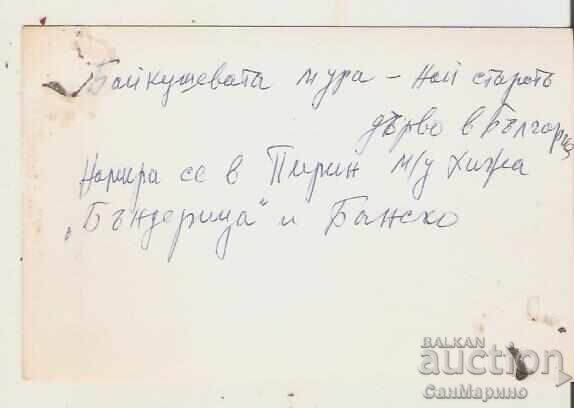 Байкушевата мура - най старото
дърво в България
Намира се в Пирин м/у хижа
„Бъндерица" и Банско
BALKAN
auction
СанМарино